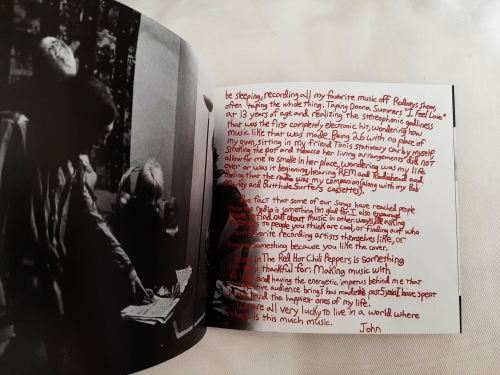 be sleeping, recording all my favorite music off Rodneys show,
often taping the whole thing. Taping Donna Summers "I Feel Love"
at 13 years of age and realizing the stereophonic godliness
that was the first completely electronic hit, wondering how
music like that was made. Being 26 with no place of
my own, sitting in my friend Toni's stationary car by myself,
smoking the pot and tobacco her living arrangements did not
allow for me to smoke in her place, wondering was my life
over or was it beginning, hearing REM and Radiohead and
feeling that the radio was my companion (along with my Bob
Marley and Butthole Surfers cassettes).
The fact that some of our songs have reached people
radio is something I'm glad for. I also encourage
find out about music in other ways, like asking
to people you think are cool, or finding out who
favorite recording artists themselves like, or
something because you like the cover.
in The Red Hot Chili Peppers is something
very thankful for. Making music with
and having the energetic impetus behind me that
audience brings has made the past 5 years I have spent
band the happiest ones of my life.
We are all very lucky to live in a world where
there is this much music.
John